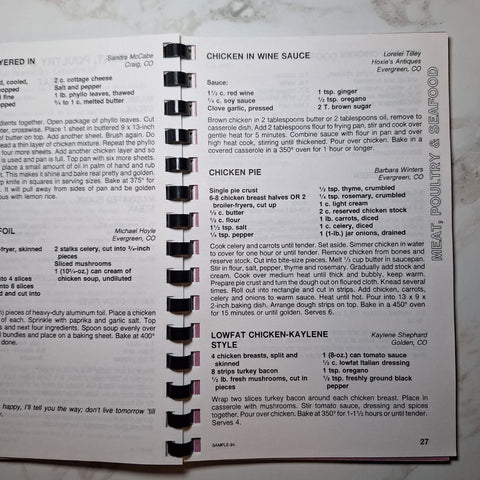 YERED IN
Sandra McCabe
Craig, CO
d, cooled,
opped
d fine
opped
2 c. cottage cheese
Salt and pepper
1 lb. phyllo leaves, thawed
¾ to 1 c. melted butter
dients together. Open package of phyllo leaves. Cut
nter, crosswise. Place 1 sheet in buttered 9 x 13-inch
t butter on top. Add another sheet. Brush again. Do
ead a thin layer of chicken mixture. Repeat the phyllo
, to four more sheets. Add another chicken layer and so
is used and pan is full. Top pan with six more sheets.
place a small amount of oil in palm of hand and rub
t. This makes it shine and bake real pretty and golden.
rp knife in squares in serving sizes. Bake at 375° for
It will puff away from sides of pan and be golden
ous with lemon rice.
FOIL
Michael Hoyle
Evergreen, CO
-fryer, skinned
n into 4 slices
into 8 slices
d and cut into
2 stalks celery, cut into ¾-inch
pieces
Sliced mushrooms
1 (10¾-oz.) can cream of
chicken soup, undiluted
) pieces of heavy-duty aluminum foil. Place a chicken
of each. Sprinkle with paprika and garlic salt. Top
s and next four ingredients. Spoon soup evenly over
l bundles and place on a baking sheet. Bake at 400°
done.
happy, I'll tell you the way; don't live tomorrow 'till
CHICKEN IN WINE SAUCE
Lorelei Tilley
Hoxie's Antiques
Evergreen, CO
Sauce:
1½ c. red wine
¼ c. soy sauce
Clove garlic, pressed
1 tsp. ginger
½ tsp. oregano
2 T. brown sugar
Brown chicken in 2 tablespoons butter or 2 tablespoons oil, remove to
casserole dish. Add 2 tablespoons flour to frying pan, stir and cook over
gentle heat for 5 minutes. Combine sauce with flour in pan and over
high heat cook, stirring until thickened. Pour over chicken. Bake in a
covered casserole in a 350° oven for 1 hour or longer.
CHICKEN PIE
Barbara Winters
Evergreen, CO
Single pie crust
6-8 chicken breast halves OR 2
broiler-fryers, cut up
¼ c. butter
⅓ c. flour
1½ tsp. salt
¼ tsp. pepper
½ tsp. thyme, crumbled
¼ tsp. rosemary, crumbled
1 c. light cream
2 c. reserved chicken stock
1 lb. carrots, diced
1 c. celery, diced
1 (1-lb.) jar onions, drained
Cook celery and carrots until tender. Set aside. Simmer chicken in water
to cover for one hour or until tender. Remove chicken from bones and
reserve stock. Cut into bite-size pieces. Melt ½ cup butter in saucepan.
Stir in flour, salt, pepper, thyme and rosemary. Gradually add stock and
cream. Cook over medium heat until thick and bubbly, keep warm.
Prepare pie crust and turn the dough out on floured cloth. Knead several
times. Roll out into rectangle and cut in strips. Add chicken, carrots,
celery and onions to warm sauce. Heat until hot. Pour into 13 x 9 x
2-inch baking dish. Arrange dough strips on top. Bake in a 450° oven
for 15 minutes or until golden. Serves 6.
LOWFAT CHICKEN-KAYLENE
STYLE
Kaylene Shephard
Golden, CO
4 chicken breasts, split and
skinned
8 strips turkey bacon
½ lb. fresh mushrooms, cut in
pieces
1 (8-oz.) can tomato sauce
½ c. lowfat Italian dressing
1 tsp. oregano
½ tsp. freshly ground black
pepper
Wrap two slices turkey bacon around each chicken breast. Place in
casserole with mushrooms. Stir tomato sauce, dressing and spices
together. Pour over chicken. Bake at 350° for 1-1½ hours or until tender.
Serves 4.
SAMPLE-94
27
MEAT, POULTRY & SEAFOOD